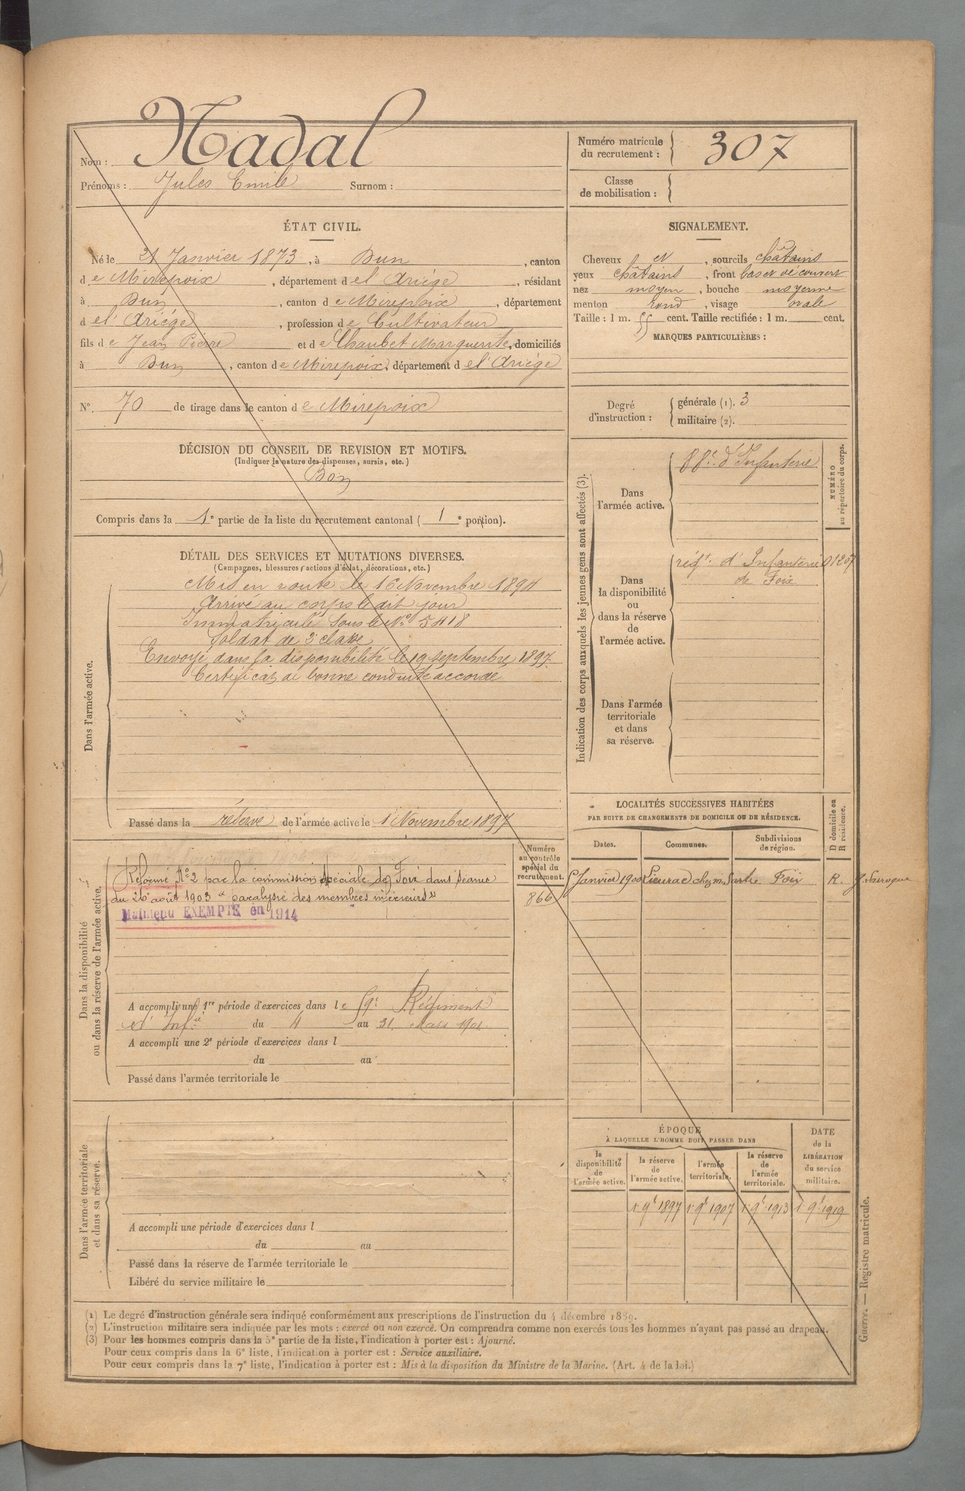 Nom : Nadal
Prénoms : Jules Emile Surnom :
Numéro matricule
du recrutement : 307
Classe
de mobilisation :
ÉTAT CIVIL.
Né le 21 Janvier 1873, à Dun, canton
de Mirepoix, département de l'Ariège, résidant
à Dun, canton de Mirepoix, département
de l'Ariège, profession de Cultivateur
fils de Jean Pierre et de Chaubet Marguerite, domiciliés
à Dun, canton de Mirepoix, département de l'Ariège
N° 70 de tirage dans le canton de Mirepoix
SIGNALEMENT.
Cheveux et, sourcils châtains
yeux châtains, front bas et découvert
nez moyen, bouche moyenne
menton rond, visage ovale
Taille : 1 m. 55 cent. Taille rectifiée : 1 m. cent.
MARQUES PARTICULIÈRES :
Degré
d'instruction :
générale (1). 3
militaire (2).
DÉCISION DU CONSEIL DE REVISION ET MOTIFS.
(Indiquer la nature des dispenses, sursis, etc.)
Bon
Compris dans la 1e partie de la liste du recrutement cantonal ( 1e portion).
DÉTAIL DES SERVICES ET MUTATIONS DIVERSES.
(Campagnes, blessures, actions d'éclat, décorations, etc.)
Dans l'armée active.
Mis en route le 16 Novembre 1894
Arrivé au corps le dit jour
Immatriculé sous le N° 5418
Soldat de 2e classe
Envoyé dans la disponibilité le 19 septembre 1897.
Certificat de bonne conduite accordé
Passé dans la réserve de l'armée active le 1 Novembre 1897
Indication des corps auxquels les jeunes gens sont affectés (3).
NUMÉRO
au répertoire du corps.
Dans
l'armée active.
88e d'Infanterie
Dans
la disponibilité
ou
dans la réserve
de
l'armée active.
régt d'Infanterie 01207
de Foix
Dans l'armée
territoriale
et dans
sa réserve.
Dans la disponibilité
ou dans la réserve de l'armée active.
Numéro
au contrôle
spécial du
recrutement.
866
Réformé N° 2 par la commission spéciale de Foix dans séance
du 26 août 1903 "paralysie des membres inférieurs"
Maintenu EXEMPTÉ en 1914
A accompli une 1re période d'exercices dans le 59e Régiment
d'Infie du 4 au 31 Mars 1901
A accompli une 2e période d'exercices dans l
du au
Passé dans l'armée territoriale le
LOCALITÉS SUCCESSIVES HABITÉES
PAR SUITE DE CHANGEMENTS DE DOMICILE OU DE RÉSIDENCE.
D domicile ou
R résidence.
Dates. Communes. Subdivisions
de région.
Janvier 1900 Lieurac chez m. Foix R.
Dans l'armée territoriale
et dans sa réserve.
A accompli une période d'exercices dans l
du au
Passé dans la réserve de l'armée territoriale le
Libéré du service militaire le
ÉPOQUE
À LAQUELLE L'HOMME DOIT PASSER DANS
la
disponibilité
de
l'armée active.
la réserve
de
l'armée active.
l'armée
territoriale.
la réserve
de
l'armée
territoriale.
DATE
de la
LIBÉRATION
du service
militaire.
1r 9e 1897 1r 9e 1907 1r 9e 1913 1r 9e 1919
(1) Le degré d'instruction générale sera indiqué conformément aux prescriptions de l'instruction du 4 décembre 1889.
(2) L'instruction militaire sera indiquée par les mots : exercé ou non exercé. On comprendra comme non exercés tous les hommes n'ayant pas passé au drapeau.
(3) Pour les hommes compris dans la 5e partie de la liste, l'indication à porter est : Ajourné.
Pour ceux compris dans la 6e liste, l'indication à porter est : Service auxiliaire.
Pour ceux compris dans la 7e liste, l'indication à porter est : Mis à la disposition du Ministre de la Marine. (Art. 4 de la loi.)
Guerre. — Registre matricule.